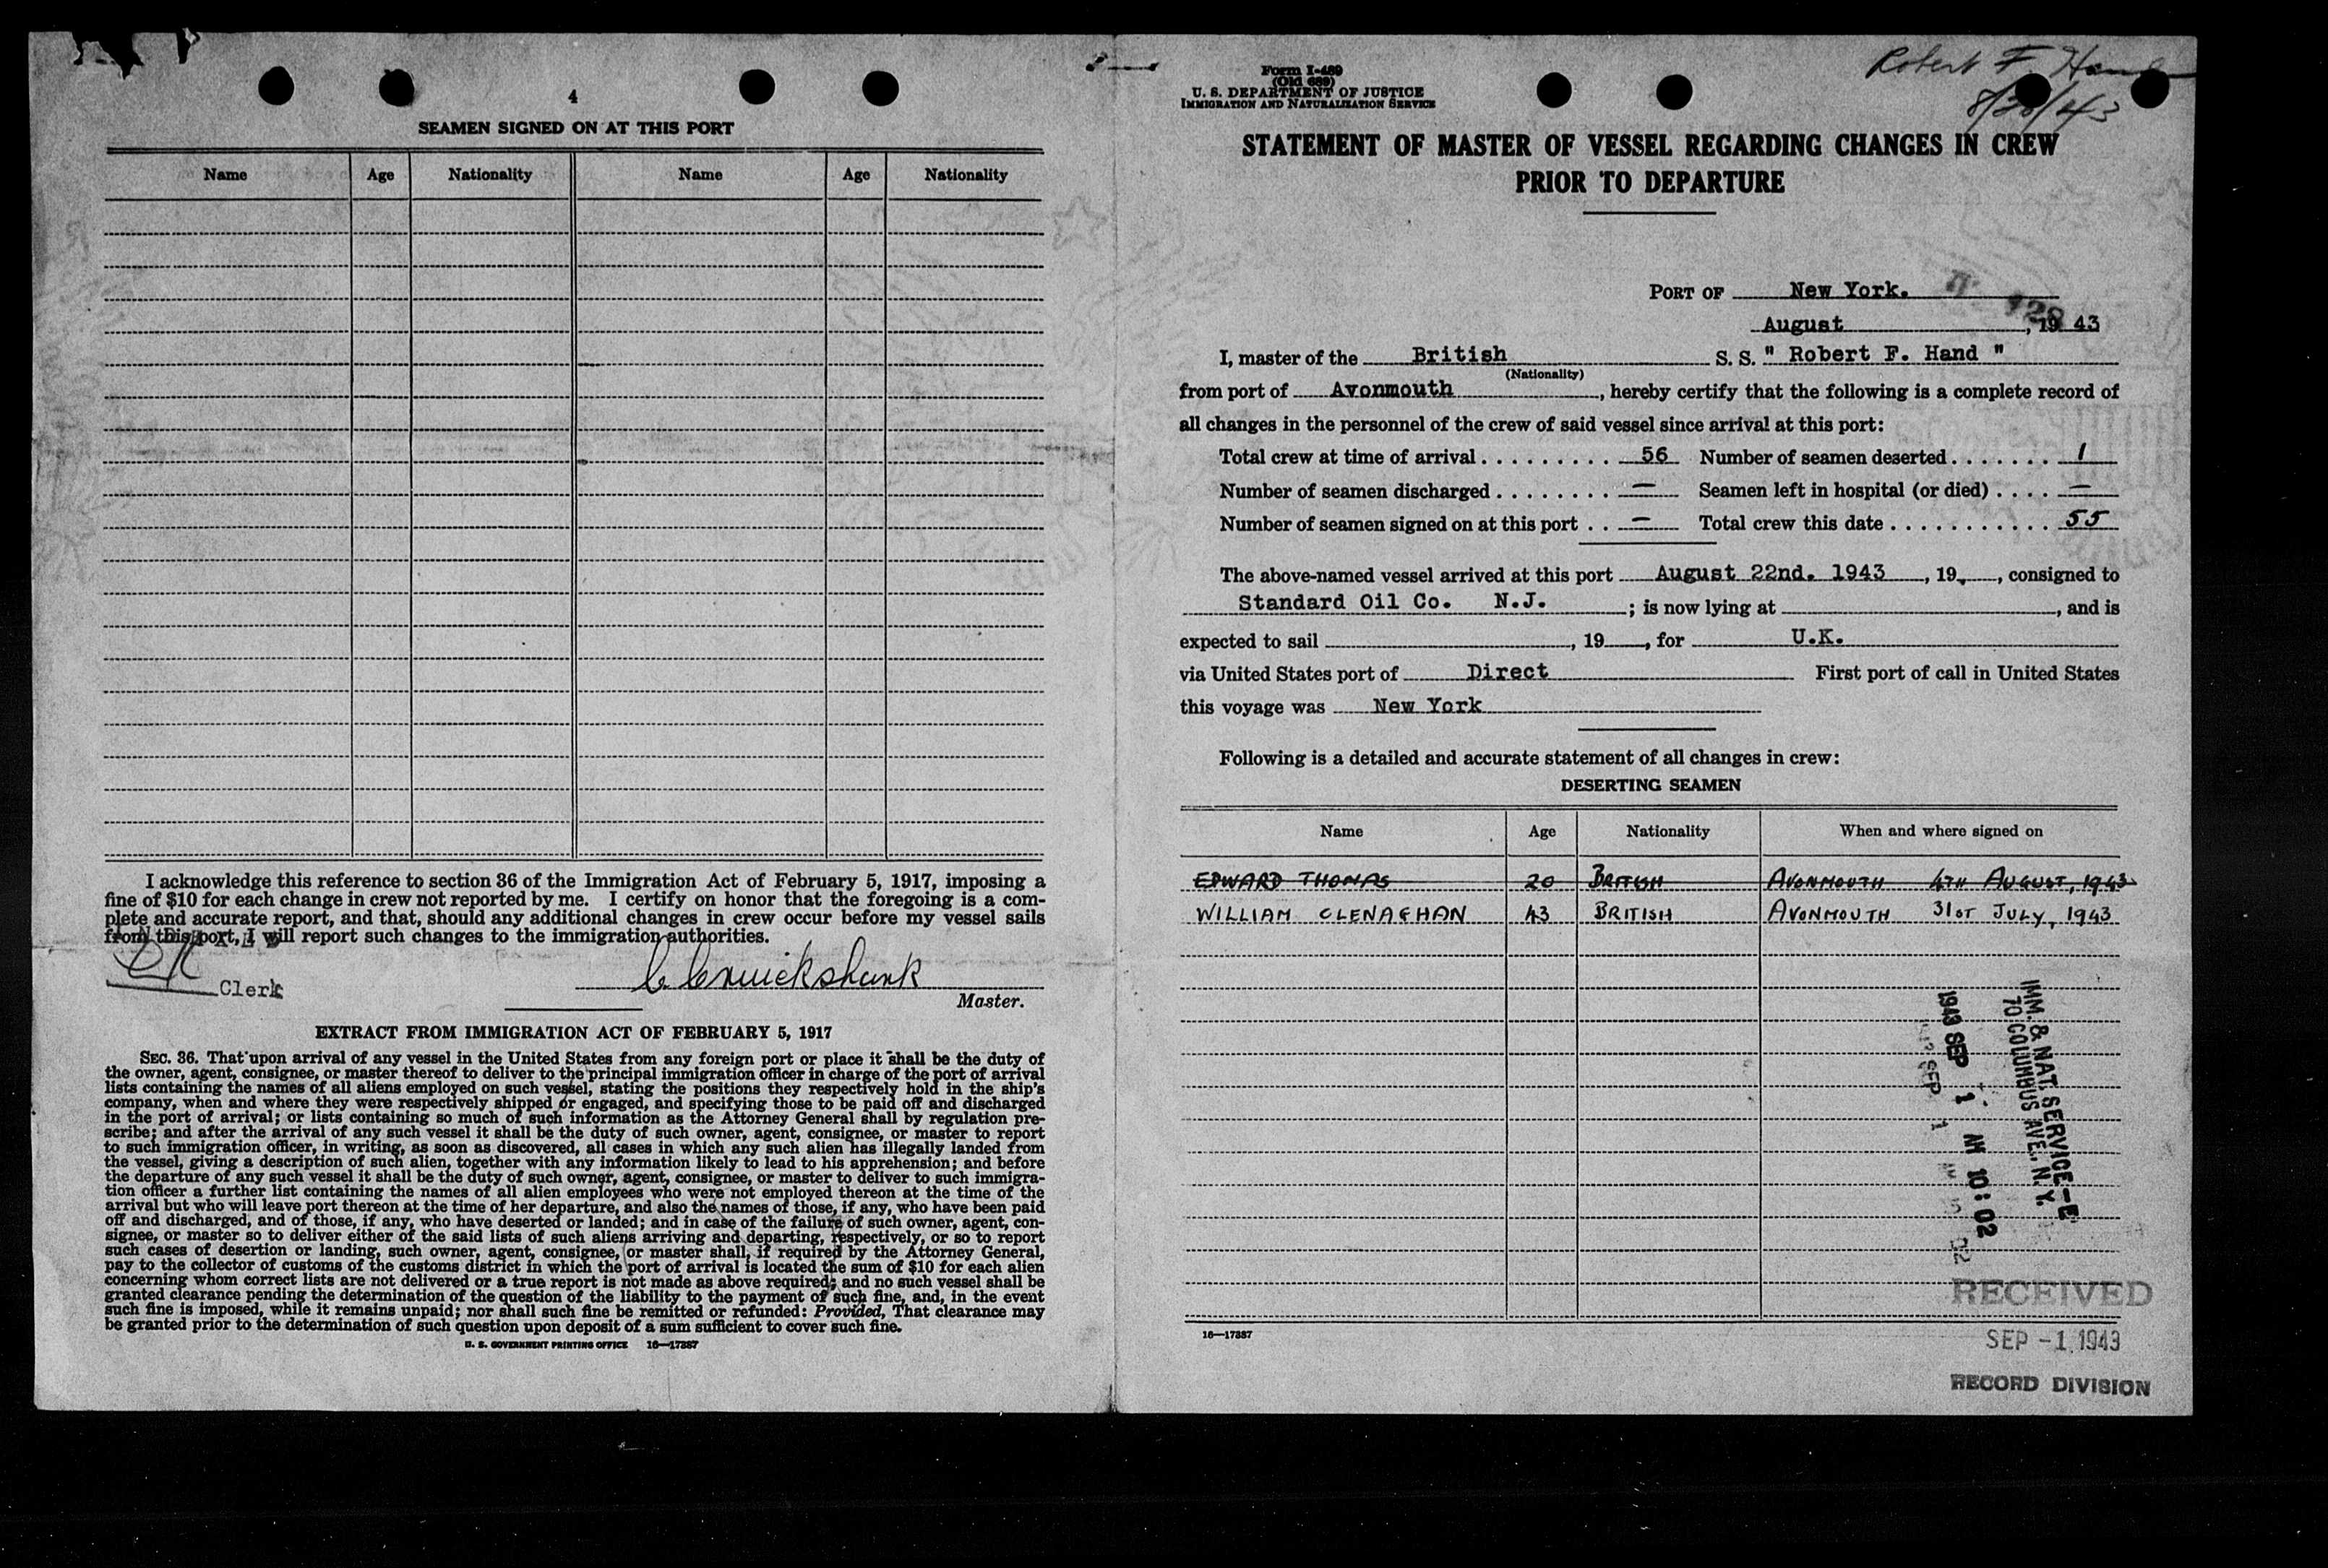 4
SEAMEN SIGNED ON AT THIS PORT
Name Age Nationality Name Age Nationality
I acknowledge this reference to section 36 of the Immigration Act of February 5, 1917, imposing a
fine of $10 for each change in crew not reported by me. I certify on honor that the foregoing is a com-
plete and accurate report, and that, should any additional changes in crew occur before my vessel sails
from this port, I will report such changes to the immigration authorities.
Clerk
C. Cruickshank
Master.
EXTRACT FROM IMMIGRATION ACT OF FEBRUARY 5, 1917
SEC. 36. That upon arrival of any vessel in the United States from any foreign port or place it shall be the duty of
the owner, agent, consignee, or master thereof to deliver to the principal immigration officer in charge of the port of arrival
lists containing the names of all aliens employed on such vessel, stating the positions they respectively hold in the ship's
company, when and where they were respectively shipped or engaged, and specifying those to be paid off and discharged
in the port of arrival; or lists containing so much of such information as the Attorney General shall by regulation pre-
scribe; and after the arrival of any such vessel it shall be the duty of such owner, agent, consignee, or master to report
to such immigration officer, in writing, as soon as discovered, all cases in which any such alien has illegally landed from
the vessel, giving a description of such alien, together with any information likely to lead to his apprehension; and before
the departure of any such vessel it shall be the duty of such owner, agent, consignee, or master to deliver to such immigra-
tion officer a further list containing the names of all alien employees who were not employed thereon at the time of the
arrival but who will leave port thereon at the time of her departure, and also the names of those, if any, who have been paid
off and discharged, and of those, if any, who have deserted or landed; and in case of the failure of such owner, agent, con-
signee, or master so to deliver either of the said lists of such aliens arriving and departing, respectively, or so to report
such cases of desertion or landing, such owner, agent, consignee, or master shall, if required by the Attorney General,
pay to the collector of customs of the customs district in which the port of arrival is located the sum of $10 for each alien
concerning whom correct lists are not delivered or a true report is not made as above required; and no such vessel shall be
granted clearance pending the determination of the question of the liability to the payment of such fine, and, in the event
such fine is imposed, while it remains unpaid; nor shall such fine be remitted or refunded: Provided, That clearance may
be granted prior to the determination of such question upon deposit of a sum sufficient to cover such fine.
U. S. GOVERNMENT PRINTING OFFICE 16—17387
Robert F. Hand
Form I-489
(Old 689)
U. S. DEPARTMENT OF JUSTICE
IMMIGRATION AND NATURALIZATION SERVICE
STATEMENT OF MASTER OF VESSEL REGARDING CHANGES IN CREW
PRIOR TO DEPARTURE
PORT OF New York.
August , 19 43
I, master of the British S. S. " Robert F. Hand "
(Nationality)
from port of Avonmouth , hereby certify that the following is a complete record of
all changes in the personnel of the crew of said vessel since arrival at this port:
Total crew at time of arrival . . . . . . . . . . 56 Number of seamen deserted . . . . . . . 1
Number of seamen discharged . . . . . . . . — Seamen left in hospital (or died) . . . . —
Number of seamen signed on at this port . . — Total crew this date . . . . . . . . . . . . 55
The above-named vessel arrived at this port August 22nd. 1943 , 19 , consigned to
Standard Oil Co. N.J. ; is now lying at , and is
expected to sail , 19 , for U.K.
via United States port of Direct First port of call in United States
this voyage was New York
Following is a detailed and accurate statement of all changes in crew:
DESERTING SEAMEN
Name Age Nationality When and where signed on
EDWARD THOMAS 20 BRITISH AVONMOUTH 4TH AUGUST, 1943
WILLIAM CLENAGHAN 43 BRITISH AVONMOUTH 31ST JULY, 1943
IMM. & NAT. SERVICE-E
70 COLUMBUS AVE., N.Y.
1943 SEP 1 AM 10:02
RECEIVED
SEP -1 1943
RECORD DIVISION
16—17387